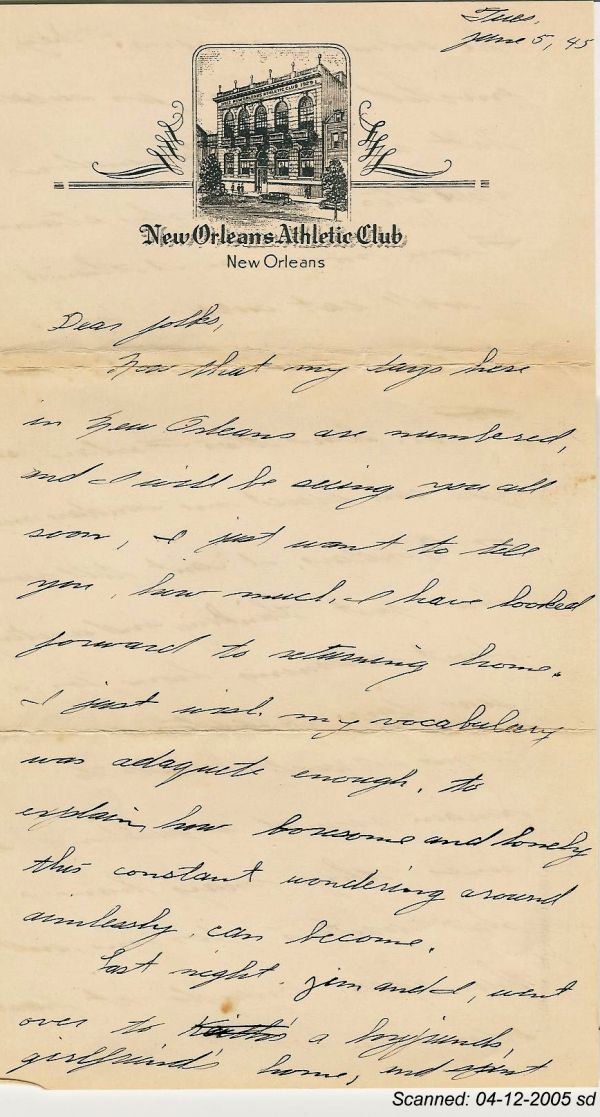 Tues.
June 5, 45
NEW ORLEANS ATHLETIC CLUB
New Orleans Athletic Club
New Orleans
Dear folks,
Now that my days here
in New Orleans are numbered,
and I will be seeing you all
soon, I just want to tell
you, how much, I have looked
forward to returning home.
I just wish my vocabulary
was adaquete enough, to
explain, how boresome and lonely
this constant wondering around
aimlessly, can become.
Last night, Jim and I, went
over to a
girlfriend's home, and spent
Scanned: 04-12-2005 sd